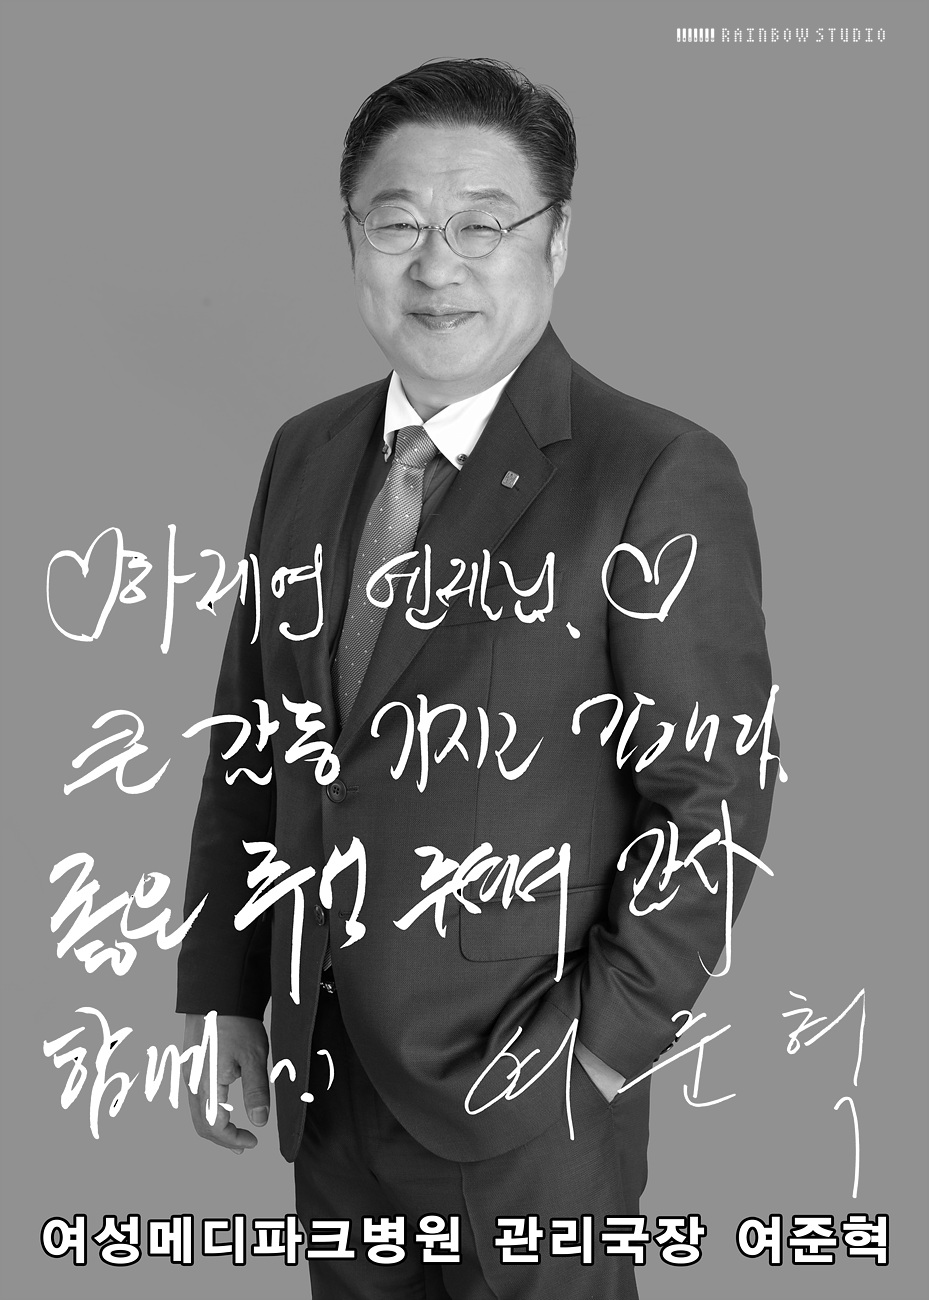 RAINBOW STUDIO
♡하레연 엔젤님. ♡
큰 감동 가지고 갑니다.
좋은 추억 주셔서 감사
함메. :)
여준혁
여성메디파크병원 관리국장 여준혁